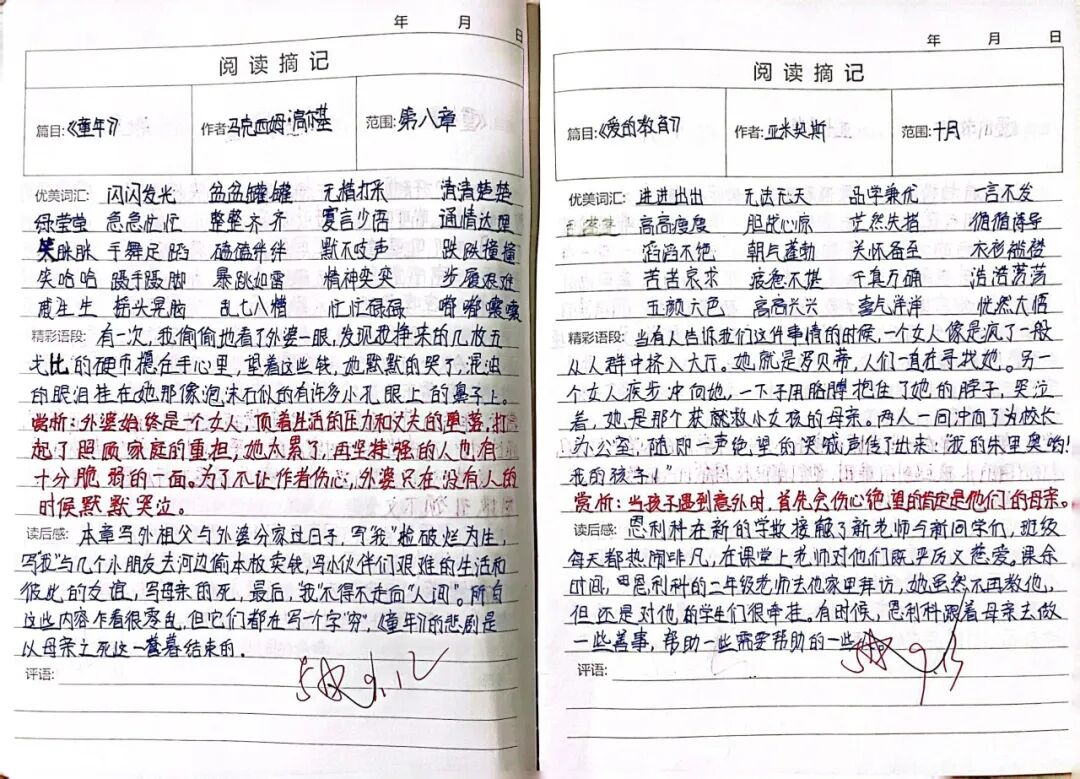 年 月 日
阅读摘记
篇目:《童年》 作者:马克西姆·高尔基 范围:第八章
优美词汇: 闪闪发光 盆盆罐罐 无精打采 清清楚楚
绿莹莹 急急忙忙 整整齐齐 寡言少语 通情达理
笑眯眯 手舞足蹈 磕磕绊绊 默不吱声 跌跌撞撞
笑哈哈 蹑手蹑脚 暴跳如雷 精神奕奕 步履艰难
摇头晃脑 乱七八糟 忙忙碌碌
精彩语段: 有一次,我偷偷地看了外婆一眼,发现我挣来的几枚五
戈比的硬币摁在手心里,望着这些钱,她默默的哭了,混浊
的眼泪挂在她那像泡沫石似的有许多小孔眼上的鼻子上。
赏析:外婆始终是一个女人,顶着生活的压力和丈夫的堕落,扛
起了照顾家庭的重担,她太累了,再坚持强的人也有
十分脆弱的一面。为了不让作者伤心,外婆只在没有人的
时候默默哭泣。
读后感: 本章写外祖父与外婆分家过日子,写“我”捡破烂为生,
写“我”与几个小朋友去河边偷木板卖钱,写小伙伴们艰难的生活和
彼此的友谊,写母亲的死,最后,“我”不得不走向“人间”。所有
这些内容乍看很零乱,但它们都在写一个字“穷”,《童年》的悲剧是
以母亲之死这一幕结束的.
评语:
9.12
年 月 日
阅读摘记
篇目:《爱的教育》 作者:亚米契斯 范围:十月
优美词汇: 进进出出 无法无天 品学兼优 一言不发
高高瘦瘦 胆战心惊 茫然失措 循循善导
滔滔不绝 朝气蓬勃 关怀备至 衣衫褴褛
苦苦哀求 疲惫不堪 千真万确 浩浩荡荡
五颜六色 高高兴兴 喜气洋洋 恍然大悟
精彩语段: 当有人告诉我们这件事情的时候,一个女人像是疯了一般
从人群中挤入大厅。她就是罗贝蒂,人们一直在寻找她。另一
个女人疾步冲向她,一下子用胳膊抱住了她的脖子,哭泣
着,她是那个获救小女孩的母亲。两人一同冲向了为校长
办公室,随即一声绝望的哭喊声传了出来:“我的朱里奥哟!
我的孩子!”
赏析:当孩子遇到意外时,首先会伤心绝望的肯定是他们的母亲。
读后感: 恩利科在新的学校接触了新老师与新同学们,班级
每天都热闹非凡,在课堂上老师对他们既严厉又慈爱。课余
时间,恩利科的二年级老师去他家里拜访,她虽然不再教他,
但还是对他的学生们很牵挂。有时候,恩利科跟着母亲去做
一些善事,帮助一些需要帮助的一些
9.13